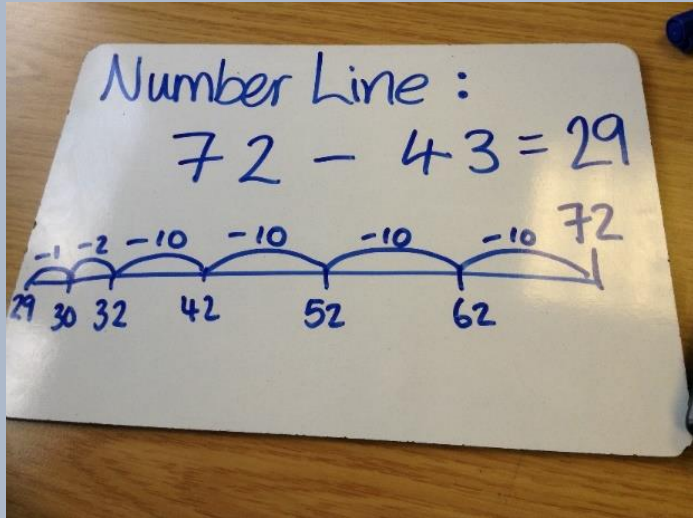 Number Line :
72 - 43 = 29
72
-1 -2 -10 -10 -10 -10
29 30 32 42 52 62